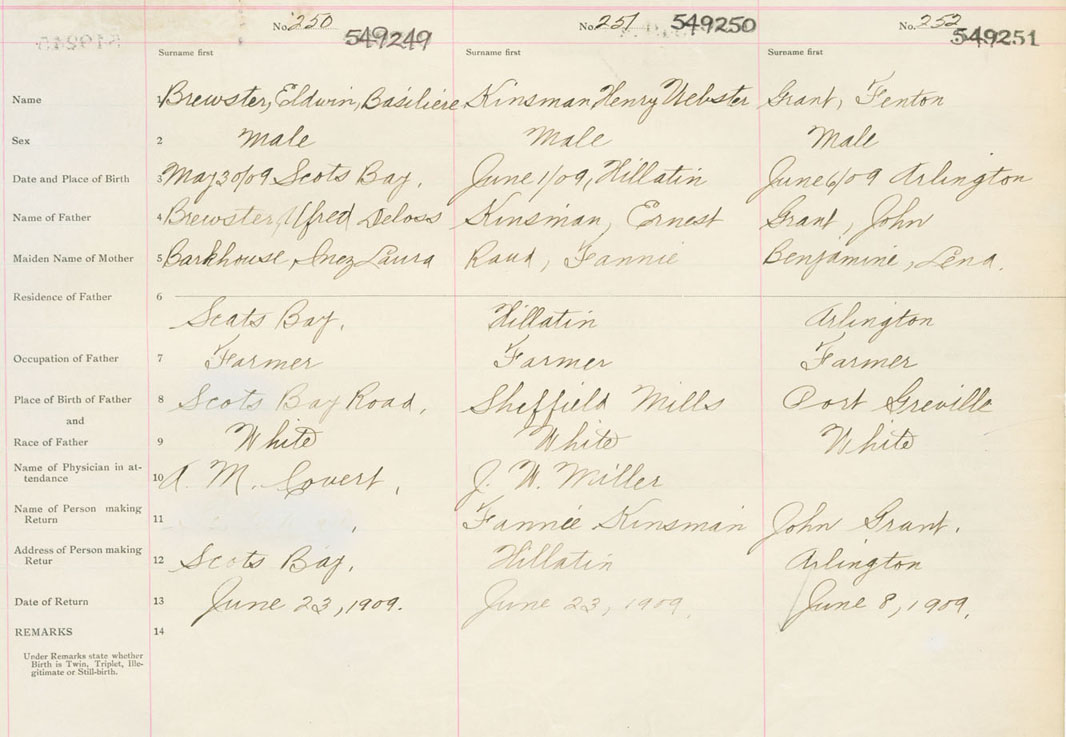 No. 250 549249 No. 251 549250 No. 252 549251
Surname first Surname first Surname first
Name 1 Brewster, Eldwin, Basiliere Kinsman Henry Webster Grant, Fenton
Sex 2 Male Male Male
Date and Place of Birth 3 May 30/09 Scots Bay. June 1/09, Hillatin June 6/09 Arlington
Name of Father 4 Brewster, Alfred Deloss Kinsman, Ernest Grant, John
Maiden Name of Mother 5 Barkhouse, Inez Laura Rand, Fannie Benjamine, Lena.
Residence of Father 6
Scats Bay. Hillatin Arlington
Occupation of Father 7 Farmer Farmer Farmer
Place of Birth of Father 8 Scots Bay Road, Sheffield Mills Port Greville
and
Race of Father 9 White White White
Name of Physician in at-
tendance 10 A. M. Covert, J. W. Miller
Name of Person making
Return 11 , Fannie Kinsman John Grant.
Address of Person making
Retur 12 Scots Bay. Hillatin Arlington
Date of Return 13 June 23, 1909. June 23, 1909. June 8, 1909.
REMARKS 14
Under Remarks state whether
Birth is Twin, Triplet, Ille-
gitimate or Still-birth.